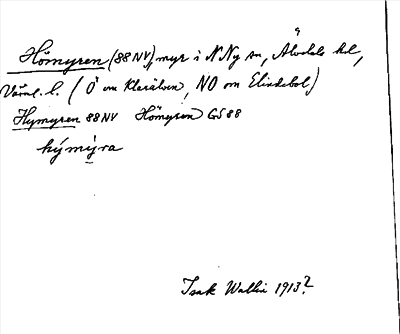 Hömyren (88NV) myr i N Ny sn, Älvdals hd,
Värml. l. (Ö om Klarälven, NO om Elindebol)
Hymyren 88NV Hömyren GS88
hýmýra
Isak Wallin 1913?